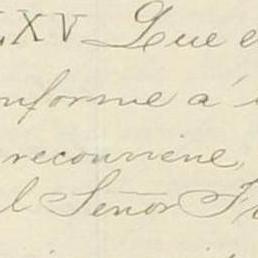 LXV Que e
nforme á
reconviene,
l Señor F